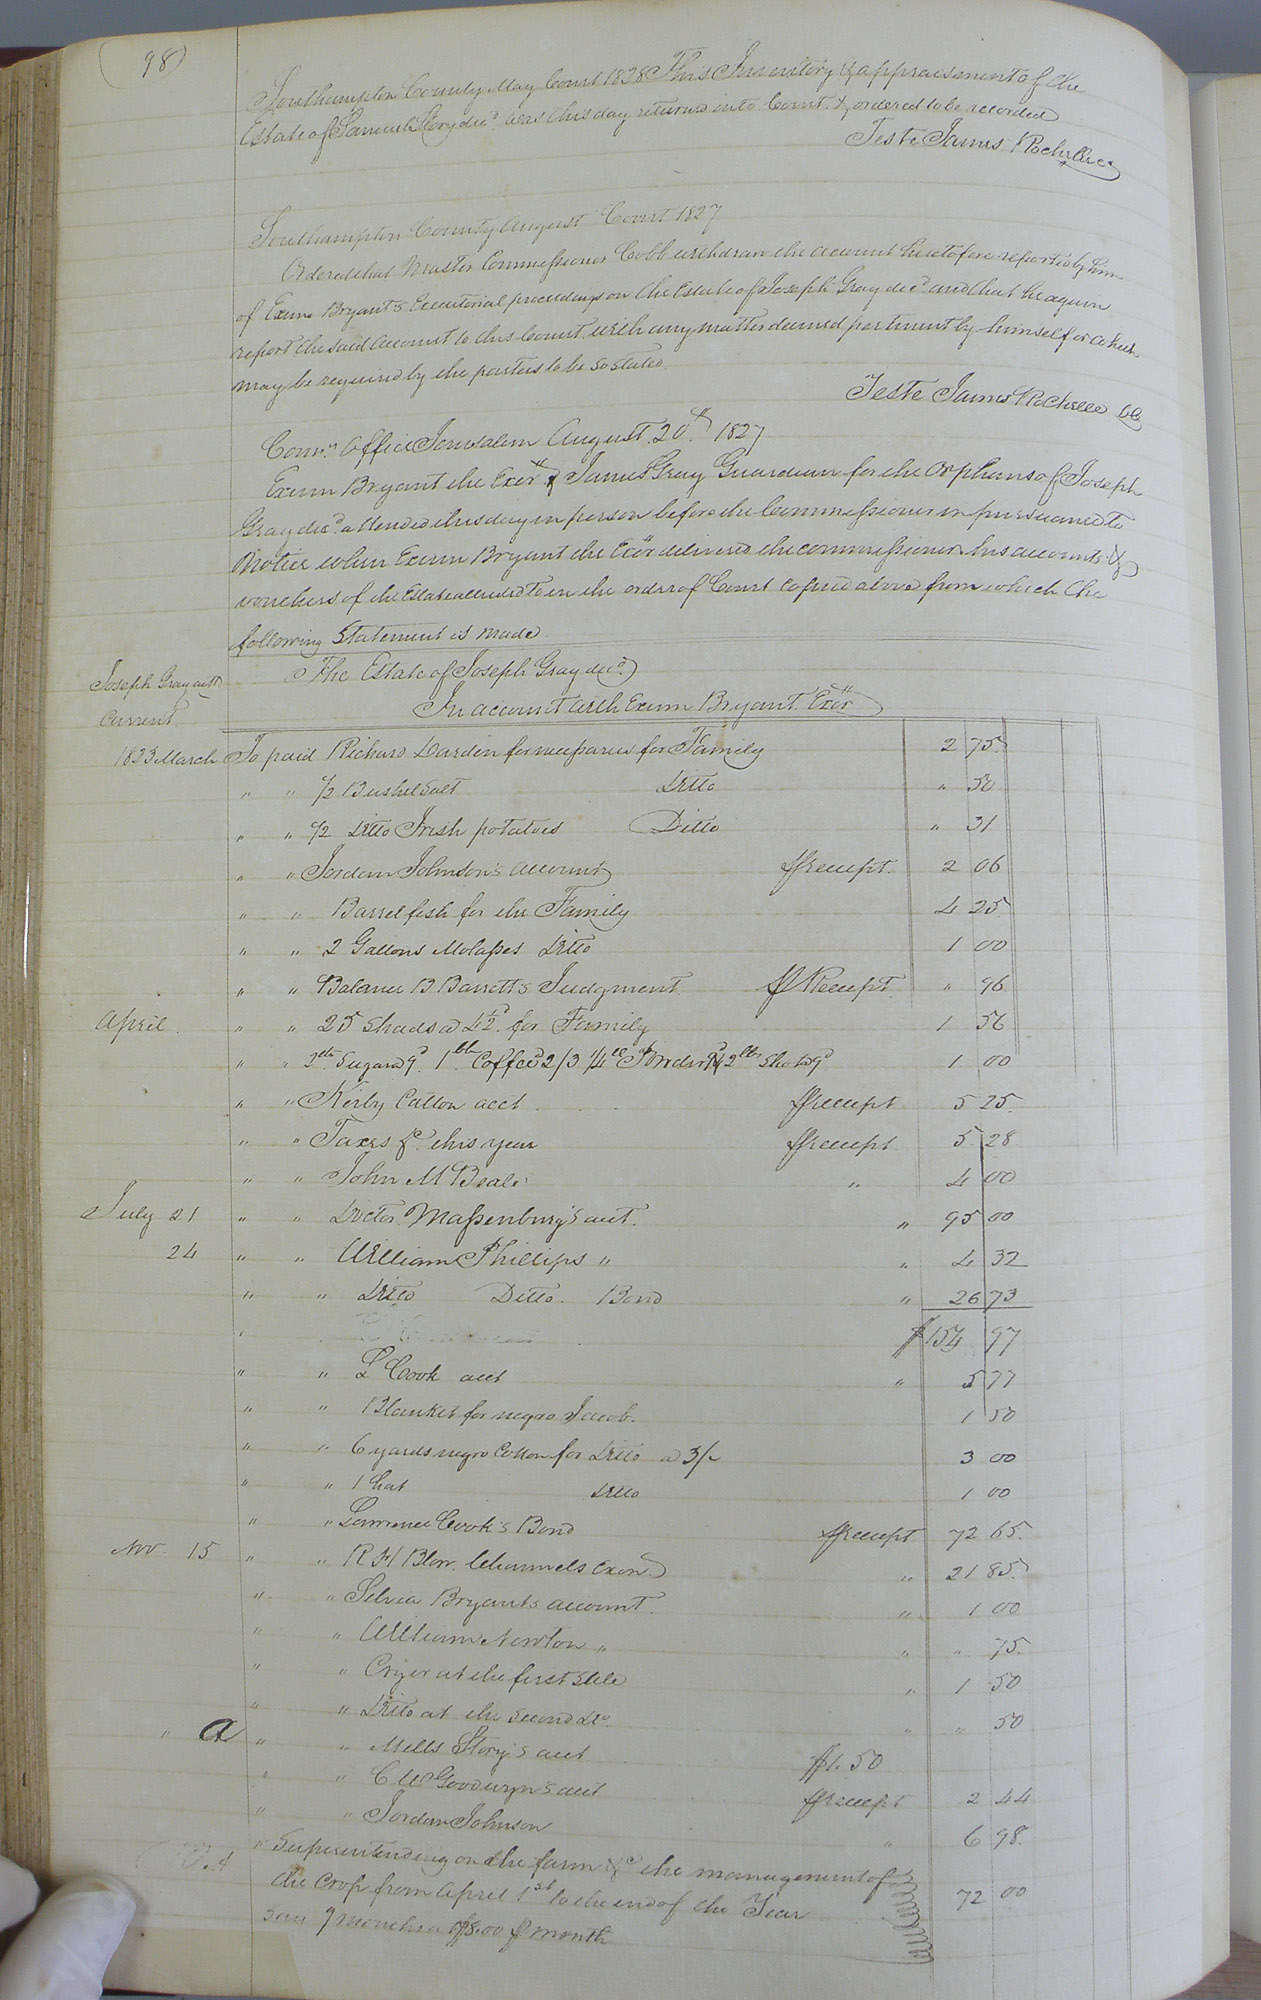 (98)
Southampton County May Court 1828 This Inventory & appraisment of the
Estate of Samuel Story decd. was this day returned into Court & ordered to be recorded
Teste James Rochelle c.
Southampton County August Court 1827
Ordered that Master Commissioner Cobb withdraw the account heretofore reported by him
of Exum Bryant's Executorial proceedings on the Estate of Joseph Gray decd and that he again
report the said account to this Court with any matter deemed pertinent by himself or which
may be required by the parties to be so stated.
Teste James Rochelle
Comrs. Office Jerusalem August 20th. 1827
Exum Bryant the Exor & James Gray Guardian for the Orphans of Joseph
Gray decd. attended this day in person before the Commissioner in pursuance to
Notice when Exum Bryant the Exor delivered the commissioner his accounts &
vouchers of the Estate alluded to in the order of Court copied above from which the
following Statement is made
Joseph Gray acct
Current
The Estate of Joseph Gray decd.
In account with Exum Bryant Exor
1823 March To paid Richard Darden for necessaries for Family 2 75
" " 1/2 Bushel Salt Ditto " 50
" " 1/2 Ditto Irish potatoes Ditto " 31
" " Jordan Johnson's account receipt. 2 06
" " Barrel fish for the Family 4 25
" " 2 Gallons Molasses Ditto 1 00
" " Balance B Barrett's Judgment Receipt. " 96
April " " 25 Shads a 4½d. for Family 1 56
" " Sugar a 9d. 1lb. Coffee 2/3 1/4 lb Powder 2lbs Shot a 9d 1 00
" " Kirby acct receipt 5 25
" " Taxes this year receipt. 5 28
" " John M Beale " 4 00
July 21 " " Doctor Massenburg's acct. " 95 00
24 " " William Phillips " " 4 32
" " Ditto Ditto. Bond " 26 73
$154 97
" " L Cook acct " 5 77
" " Blanket for negro Jacob. 1 50
" " 6 yards negro Cotton for Ditto a 3/- 3 00
" " 1 hat Ditto 1 00
" " Lawrence Cook's Bond receipt 72 65
Nov. 15 " " R H Blow. " 21 85
" " Selvia Bryants account. " 1 00
" " William Newton " " " 75
" " Cryer at the first Sale " 1 50
" " Ditto at the second Do. " " 50
" a " " Mills Story's acct $1.50
" " C W Goodwyn's acct receipt 2 44
" " Jordan Johnson " 6 98
" Superintending on the farm &c the management of
the Crop from April 1st to the end of the Year 72 00
say 9 months a $8.00 month